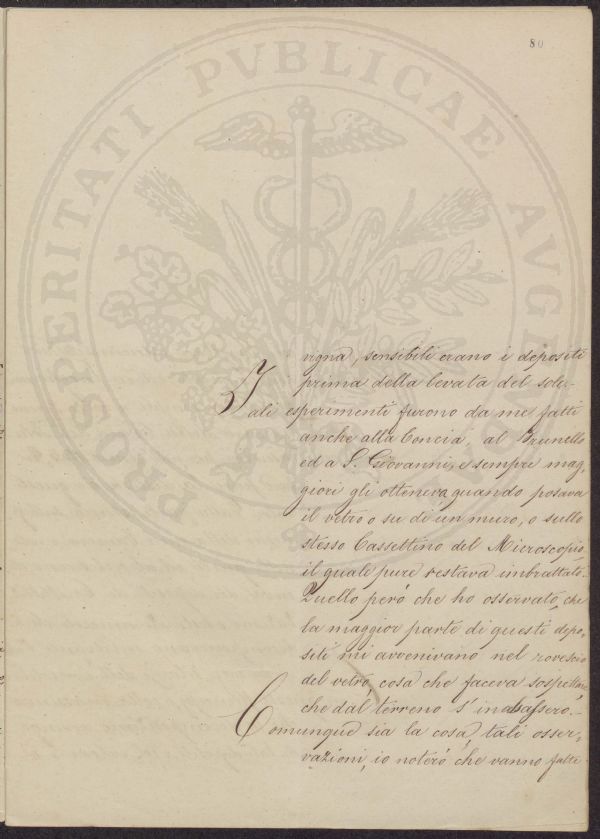 80
PROSPERITATI PVBLICAE AVGENDAE
vigna, sensibili erano i depositi
prima della levata del sole.-
Tali esperimenti furono da me fatti
anche alla Concia, al Brunello
ed a S. Giovanni, e sempre mag,
giori gli otteneva, quando posava
il vetro o su di un muro, o sullo
stesso Cassettino del Microscopio,
il quale pure restava imbrattato.
Quello però che ho osservato, che
la maggior parte di questi depo,
siti mi avvenivano nel rovescio
del vetro, cosa che faceva sospettar,
che dal terreno s'inalzassero.-
Comunque sia la cosa, tali osser,
vazioni, io noterò che vanno fatte